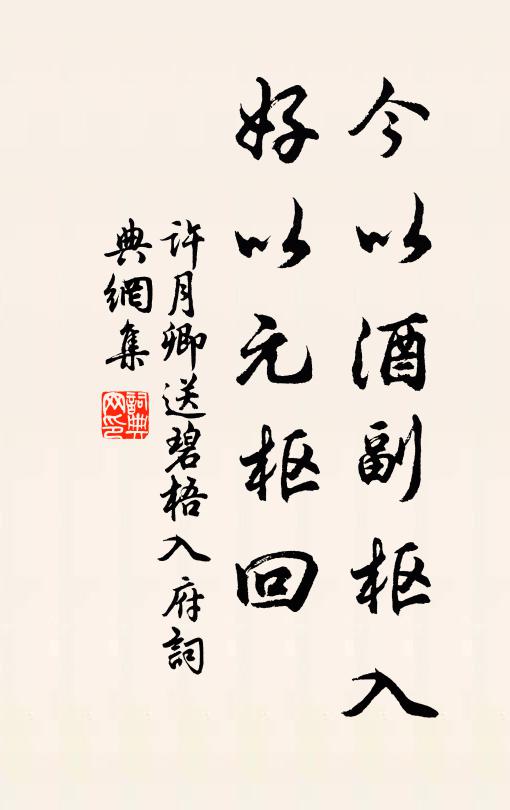 今以酒副枢入
好以元枢回
许月卿送碧梧入府詞
典網集
詞典网印